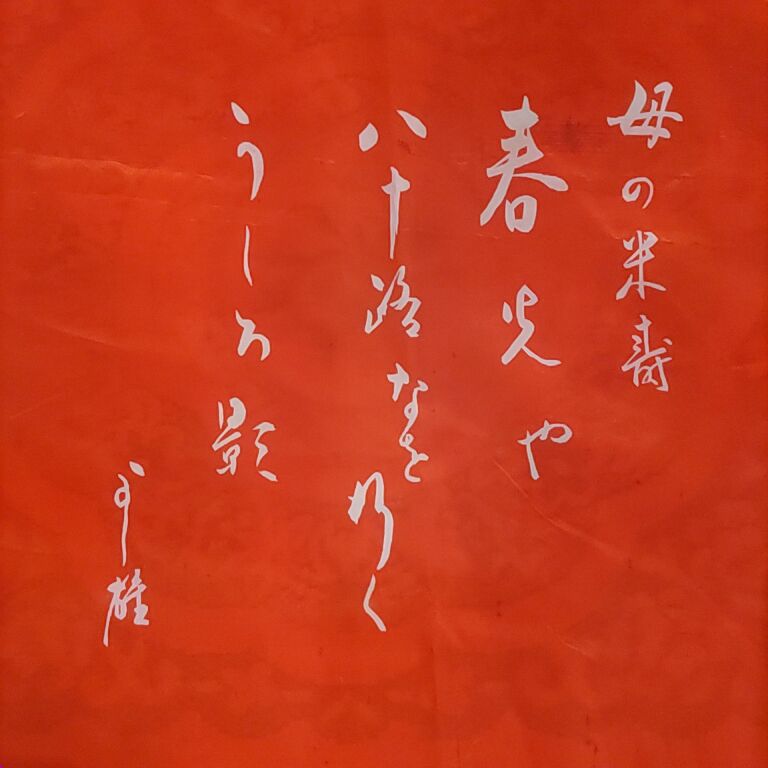 母の米寿
春光や
八十路なを行く
うしろ影
雄